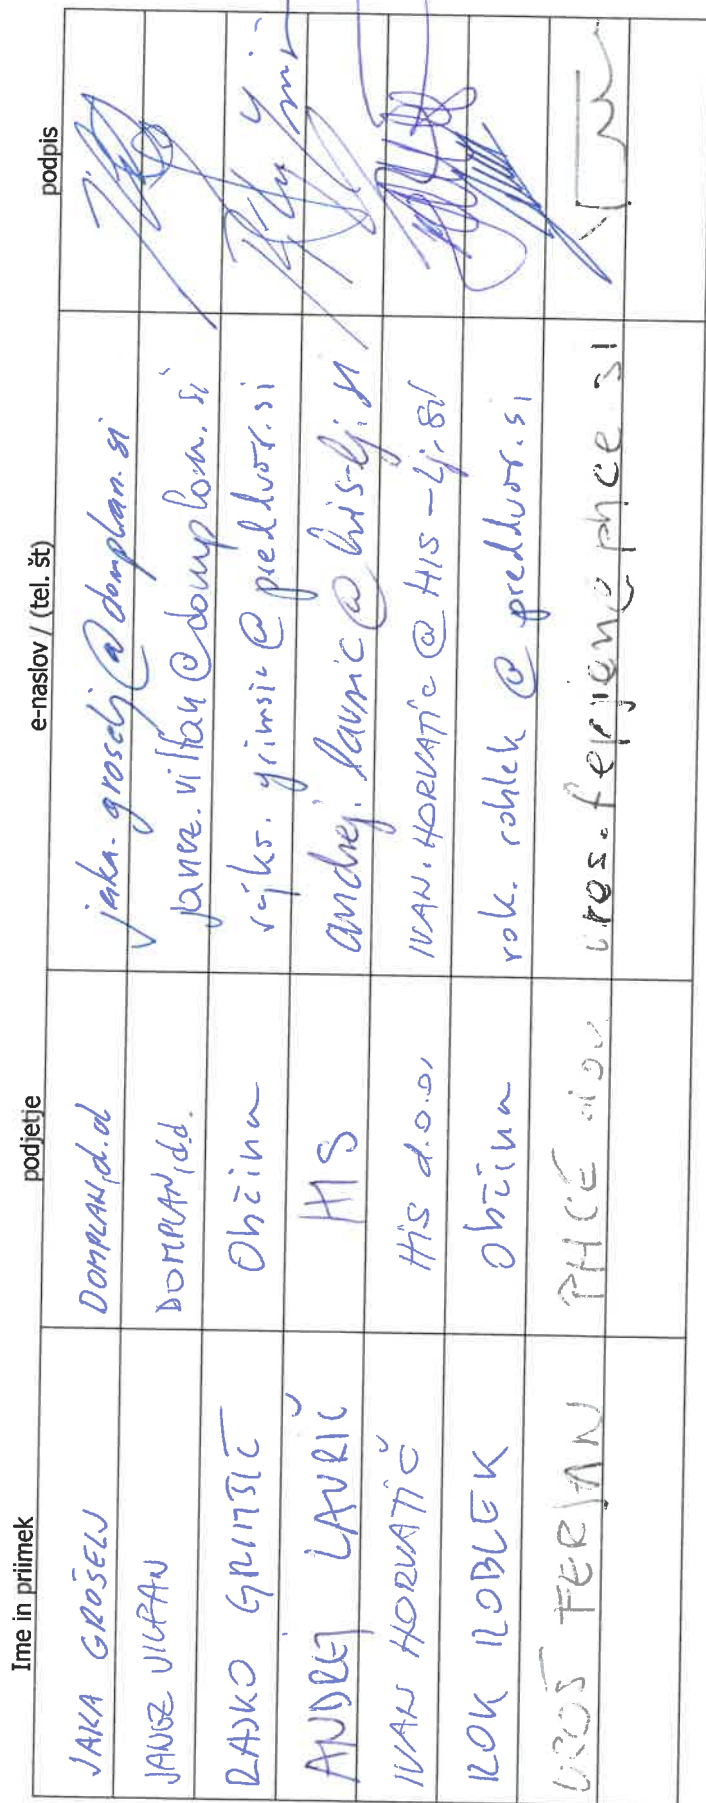 Ime in priimek podjetje e-naslov / (tel. št) podpis
JAKA GROŠELJ DOMPLAN, d.d jaka.groselj@domplan.si
JANEZ VILFAN DOMPLAN, d.d. janez.vilfan@domplan.si
RAJKO GRIMŠIČ Občina rajko.grimsic@preddvor.si
ANDREJ LAVRIČ HIS andrej.lavric@his-lj.si
IVAN HORVATIČ HIS d.o.o. IVAN.HORVATIC@HIS-Lj.Si
ROK ROBLEK občina rok.roblek@preddvor.si
UROŠ FERJAN PHCE uros.ferjan@phce.si